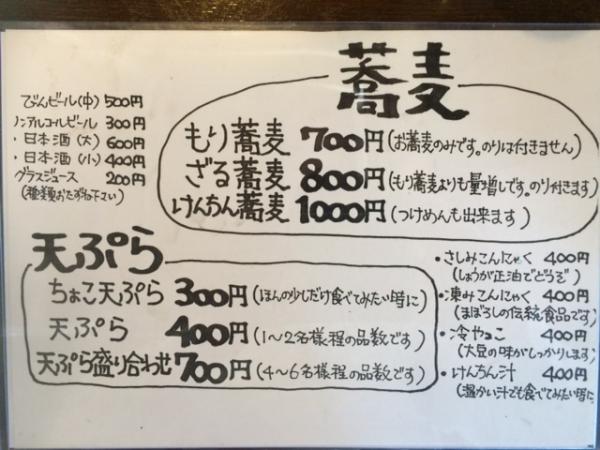 蕎麦
もり蕎麦 700円(お蕎麦のみです。のりは付きません)
ざる蕎麦 800円(もり蕎麦よりも量増しです。のり付きます)
けんちん蕎麦 1000円(つけめんも出来ます)
びんビール(中) 500円
ノンアルコールビール 300円
・日本酒(大) 600円
・日本酒(小) 400円
グラスジュース 200円
(種類おたずね下さい)
天ぷら
ちょこ天ぷら 300円(ほんの少しだけ食べてみたい時に)
天ぷら 400円(1〜2名様程の品数です)
天ぷら盛り合わせ 700円(4〜6名様程の品数です)
・さしみこんにゃく 400円
(しょうが正油でどうぞ)
・凍みこんにゃく 400円
(まぼろしの伝統食品です)
・冷やっこ 400円
(大豆の味がしっかりします)
・けんちん汁 400円
(温かい汁でも食べてみたい時に)